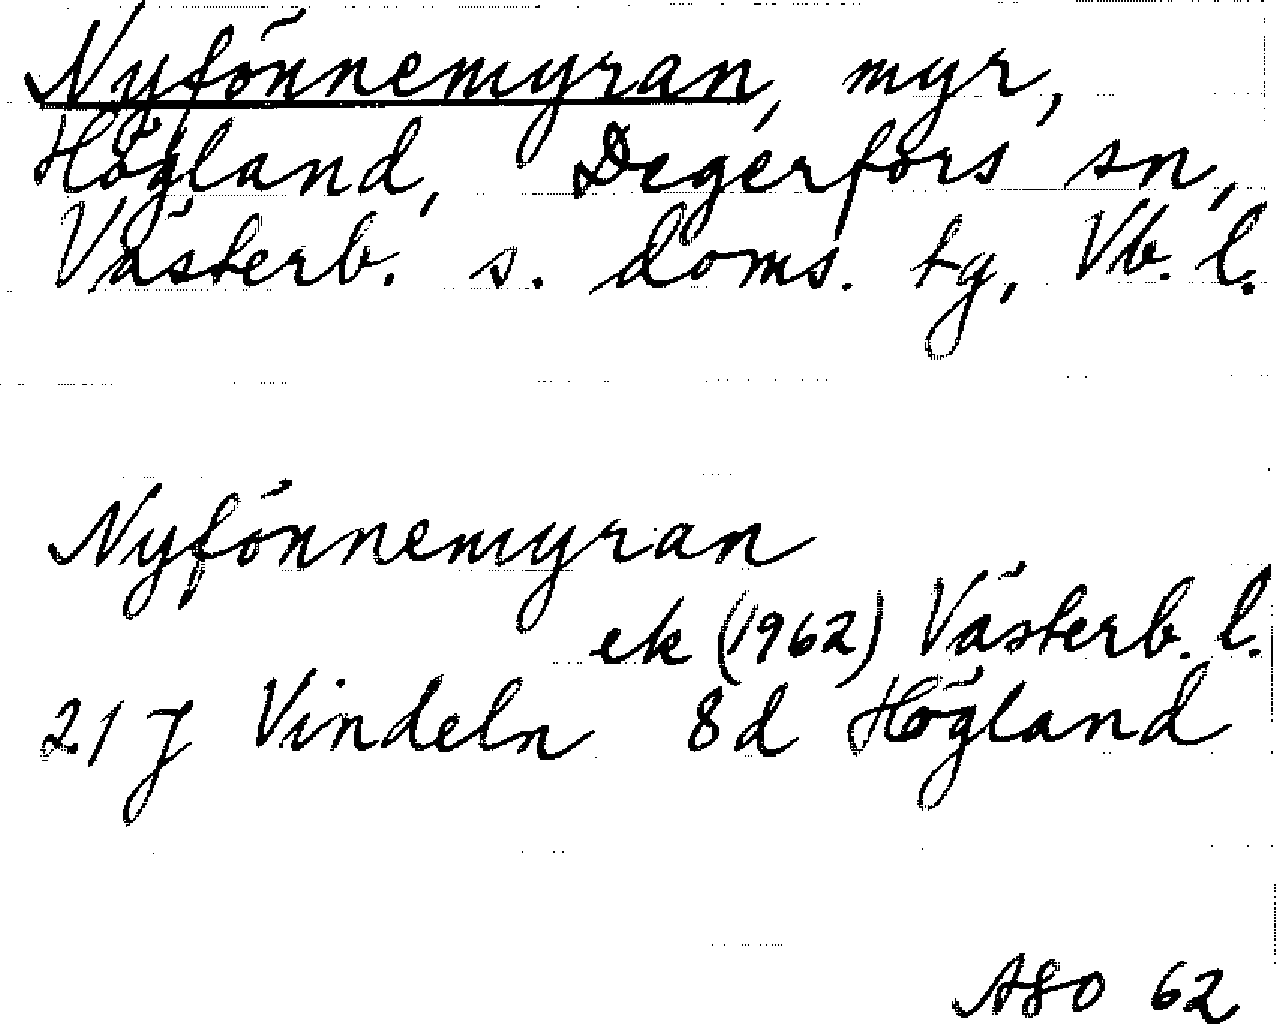 Nyfönnemyran, myr,
Högland, Degerfors sn,
Västerb. s. doms. tg, Vb. l.
Nyfönnemyran
ek (1962) Västerb. l.
21 J Vindeln 8d Högland
ASO 62